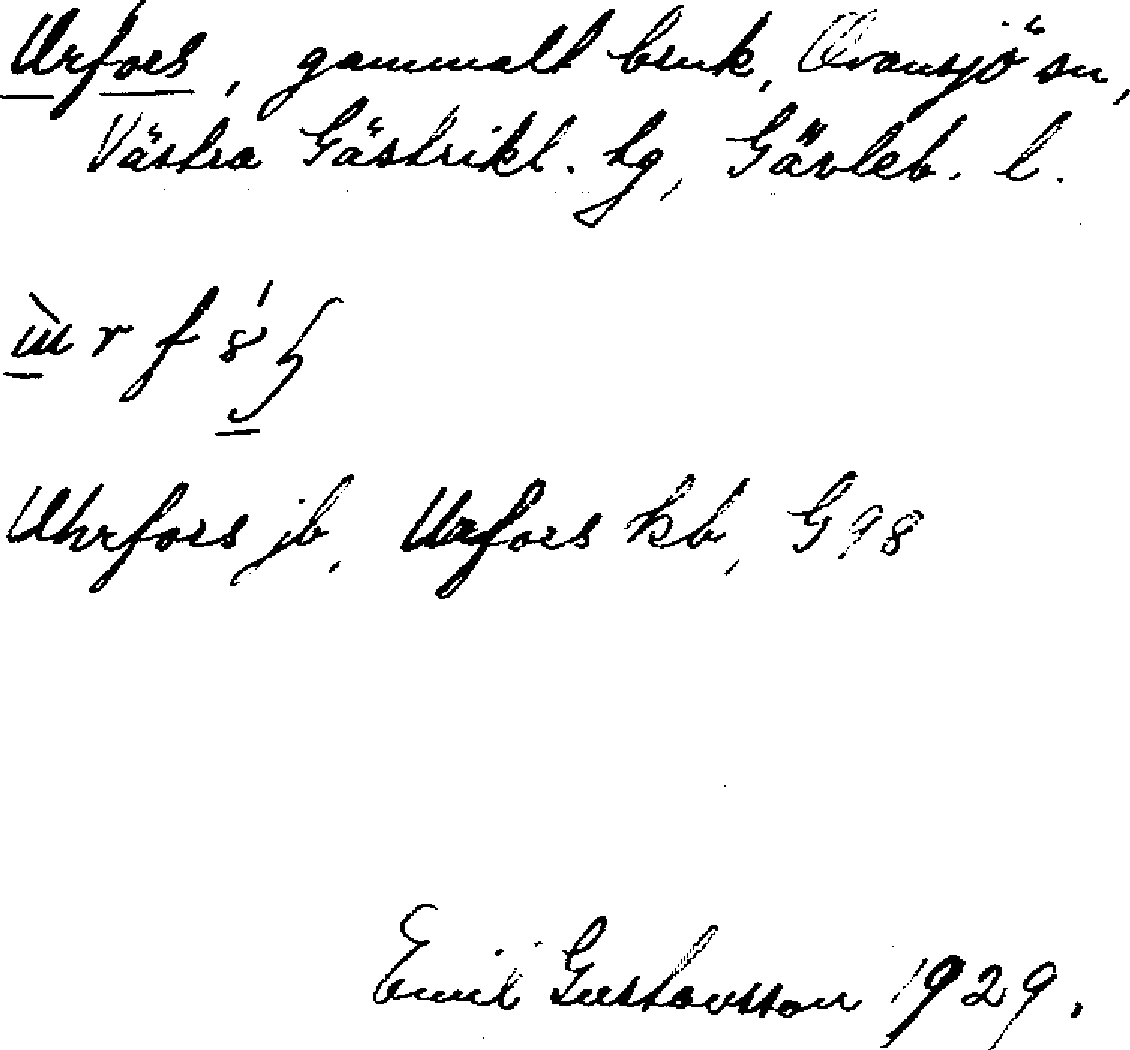 Urfors, gammalt bruk, Ovansjö sn,
Västra Gästrikl. tg, Gävleb. l.
Uhrfors jb, Urfors kb, G98
Emil Gustavsson 1929.